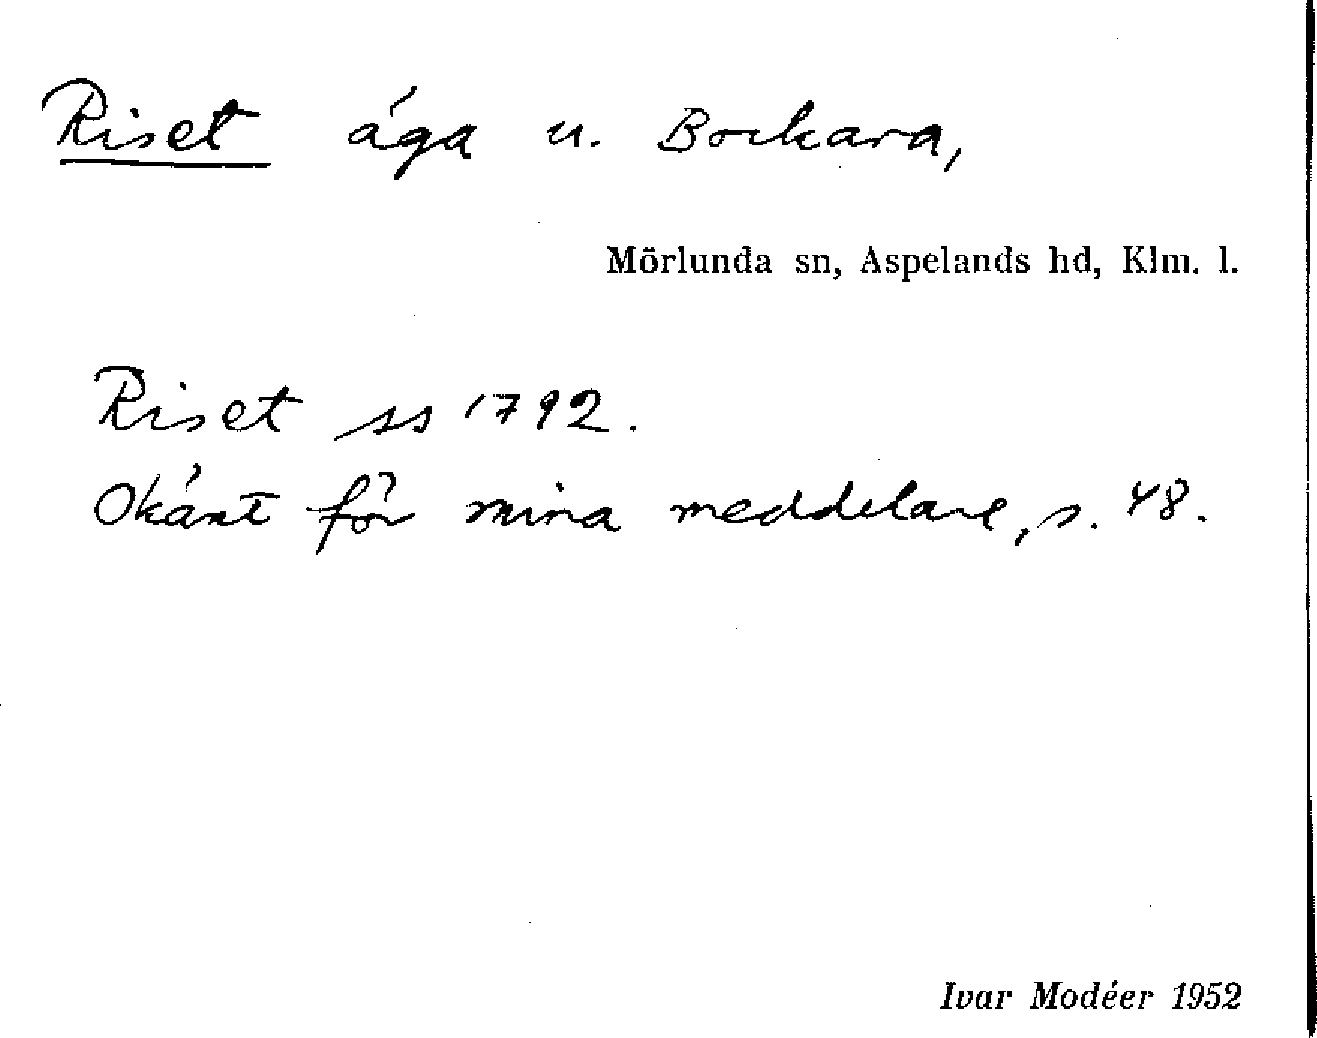 Riset äga u. Bockara,
Mörlunda sn, Aspelands hd, Klm. l.
Riset ss 1792.
Okänt för mina meddelare, s. 48.
Ivar Modéer 1952